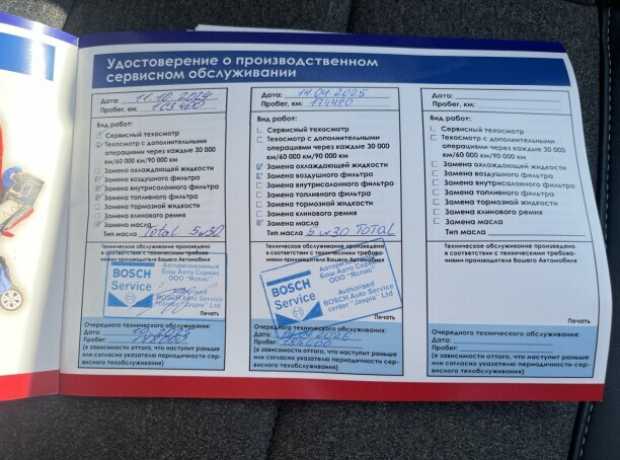 Удостоверение о производственном
сервисном обслуживании
Дата: 11.10.2024
Пробег, км:
Вид работ:
Сервисный техосмотр
Техосмотр с дополнительными
операциями через каждые 30 000
км/60 000 км/90 000 км
Замена охлаждающей жидкости
Замена воздушного фильтра
Замена внутрисалонного фильтра
Замена топливного фильтра
Замена тормозной жидкости
Замена клинового ремня
Замена масла
Тип масла Total 5w30
Техническое обслуживание произведено
в соответствии с техническими требова-
ниями производителя Вашего Автомобиля
Авторизованный
Бош Авто Сервис
ООО
BOSCH
Service
BOSCH Auto Service
Ltd
Печать
Очередного технического обслуживания:
Дата:
Пробег:
(в зависимости от того, что наступит раньше
или согласно указателю периодичности сер-
висного техобслуживания)
Дата: 14.04.2025
Пробег, км: 174420
Вид работ:
Сервисный техосмотр
Техосмотр с дополнительными
операциями через каждые 30 000
км/60 000 км/90 000 км
Замена охлаждающей жидкости
Замена воздушного фильтра
Замена внутрисалонного фильтра
Замена топливного фильтра
Замена тормозной жидкости
Замена клинового ремня
Замена масла
Тип масла 5w30 TOTAL
Техническое обслуживание произведено
в соответствии с техническими требова-
ниями производителя Вашего Автомобиля
Бош Авто Сервис
ООО
BOSCH
Service
Authorised
BOSCH Auto Service
center Ltd
Печать
Очередного технического обслуживания:
Дата:
Пробег:
(в зависимости от того, что наступит раньше
или согласно указателю периодичности сер-
висного техобслуживания)
Дата:
Пробег, км:
Вид работ:
Сервисный техосмотр
Техосмотр с дополнительными
операциями через каждые 30 000
км/60 000 км/90 000 км
Замена охлаждающей жидкости
Замена воздушного фильтра
Замена внутрисалонного фильтра
Замена топливного фильтра
Замена тормозной жидкости
Замена клинового ремня
Замена масла
Тип масла
Техническое обслуживание произведено
в соответствии с техническими требова-
ниями производителя Вашего Автомобиля
Печать
Очередного технического обслуживания:
Дата:
Пробег:
(в зависимости от того, что наступит раньше
или согласно указателю периодичности сер-
висного техобслуживания)